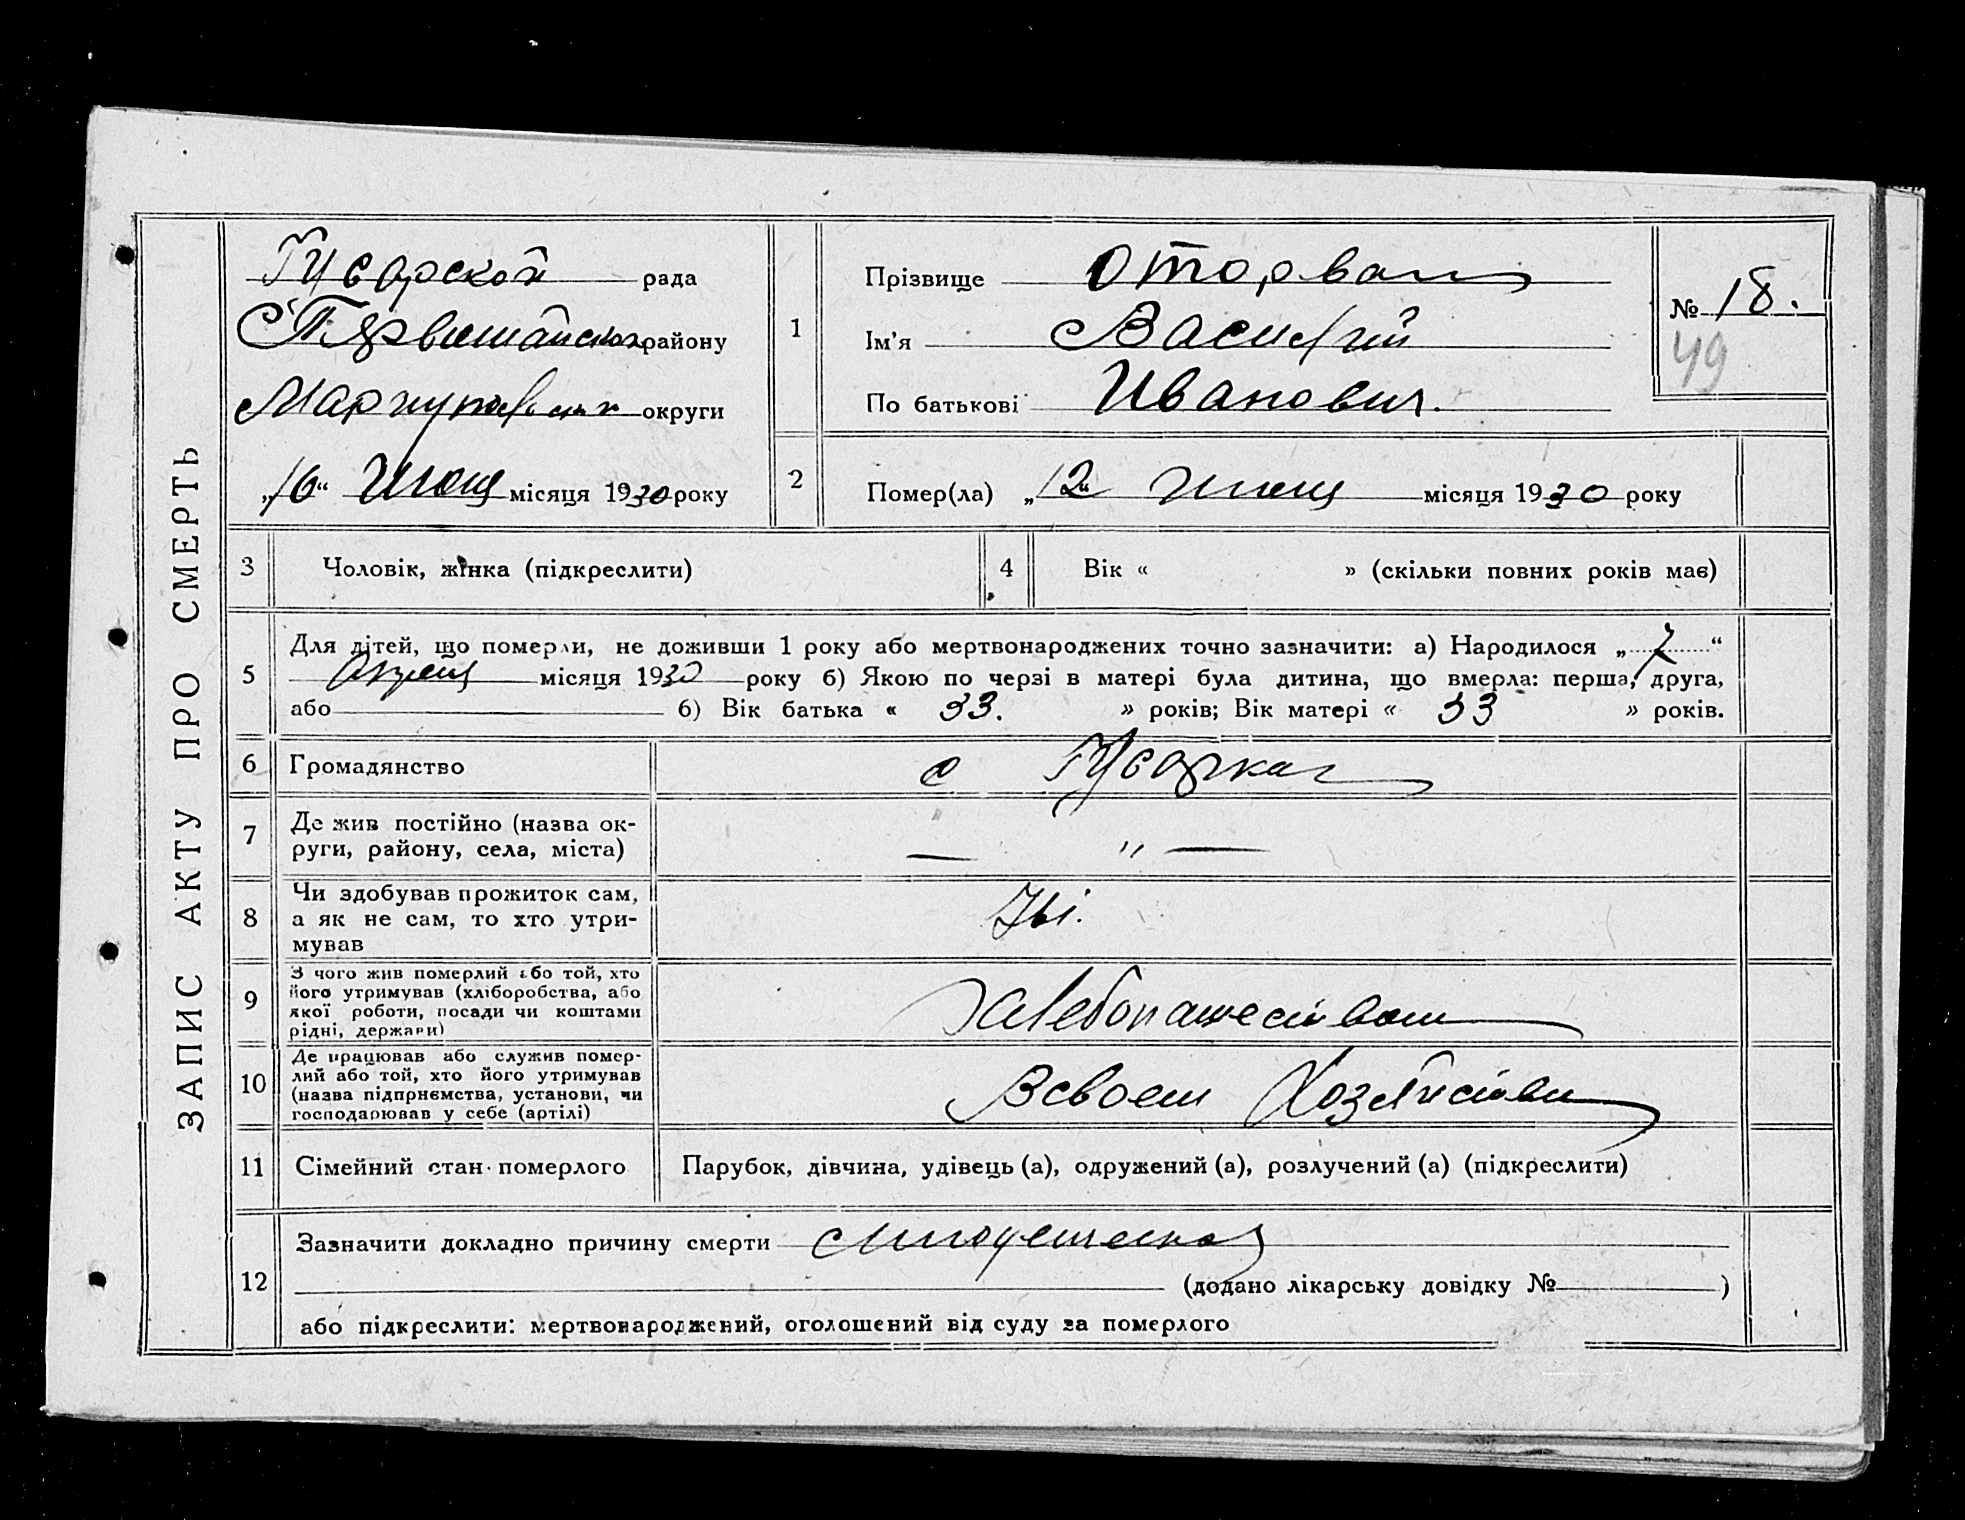 ЗАПИС АКТУ ПРО СМЕРТЬ
Гусарской рада
району
округи
„16“ Июня місяця 1930 року
1
Прізвище Оторван
Ім'я Василий
По батькові Иванович.
№ 18.
49
2
Помер(ла) „12“ Июня місяця 1930 року
3 Чоловік, жінка (підкреслити)
4 Вік « » (скільки повних років має)
5 Для дітей, що померли, не доживши 1 року або мертвонароджених точно зазначити: а) Народилося „7“
Апреля місяця 1930 року б) Якою по черзі в матері була дитина, що вмерла: перша, друга,
або б) Вік батька « 33. » років; Вік матері « 33 » років.
6 Громадянство с Гусарка
7 Де жив постійно (назва ок-
руги, району, села, міста) — " —
8 Чи здобував прожиток сам,
а як не сам, то хто утри-
мував
9 З чого жив померлий або той, хто
його утримував (хліборобства, або
якої роботи, посади чи коштами
рідні, держави) Хлебопашеством
10 Де працював або служив помер-
лий або той, хто його утримував
(назва підприємства, установи, чи
господарював у себе (артілі) В своем Хозяйстви
11 Сімейний стан померлого Парубок, дівчина, удівець (а), одружений (а), розлучений (а) (підкреслити)
12 Зазначити докладно причину смерти
(додано лікарську довідку № )
або підкреслити: мертвонароджений, оголошений від суду за померлого